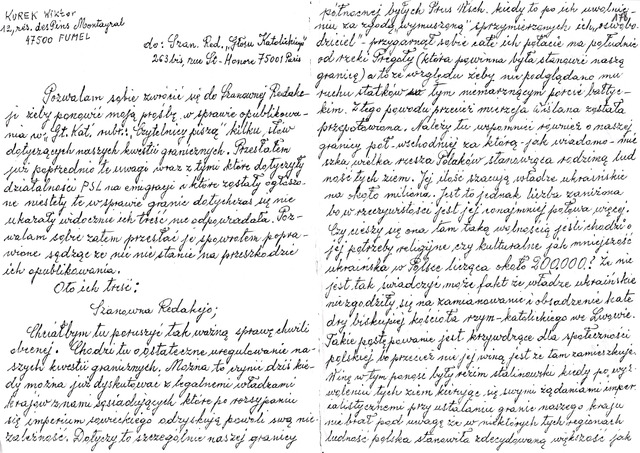 KUREK Wiktor
12, rés. des Pins Montayral
47500 FUMEL
do: Szan. Red. „Głosu Katolickiego"
263 bis, rue St-Honore 75001 Paris
Pozwalam sobie zwrócić się do Szanownej Redakc-
ji żeby ponowić moją prośbę w sprawie opublikowa-
nia w „Gł. Kat." rubr.: Czytelnicy piszą" kilku słów
dotyczących naszych kwestii granicznych. Przesłałem
już poprzednio te uwagi wraz z tymi które dotyczyły
działalności PSL na emigracji a które zostały ogłoszo-
ne niestety te w sprawie granic dotychczas się nie
ukazały widocznie ich treść nie odpowiadała. Poz-
walam sobie zatem przesłać je spowrotem popra-
wione sądząc że nic nie stanie na przeszkodzie
ich opublikowania.
Oto ich treść:
Szanowna Redakcjo;
Chciałbym tu poruszyć tak ważną sprawę chwili
obecnej. Chodzi tu o ostateczne uregulowanie na-
szych kwestii granicznych. Można to czynić dziś kie-
dy można już dyskutować z legalnemi władzami
krajów z nami sąsiadujących które po rozsypaniu
się imperium sowieckiego odzyskują powoli swą nie-
zależność. Dotyczy to szczególnie naszej granicy
północnej byłych Prus Wsch. kiedy to po ich uwolnie-
niu za zgodą „wymuszoną" sprzymierzonych ich „oswobo-
dziciel" - przygarnął sobie całe ich połacie na południe
od rzeki Pregoły (która powinna była stanowić naszą
granicę) a to ze względu żeby nie podglądano mu
ruchu statków w tym niemarznącym porcie bałtyc-
kim. Z tego powodu przecież mierzeja Wiślana została
przepołowiona. Należy tu wspomnieć również o naszej
granicy poł.-wschodniej za którą - jak wiadomo - mie-
szka wielka rzesza Polaków, stanowiąca rodzimą lud
ność tych ziem. Jej ilość szacują władze ukraińskie
na około miliona. Jest to jednak liczba zaniżona
bo w rzeczywistości jest jej conajmniej połowa więcej.
Czy cieszy się ona tam taką wolnością jeśli chodzi o
jej potrzeby religijne czy kulturalne jak mniejszość
ukraińska w Polsce licząca około 200,000? Że nie
jest tak, świadczyć może fakt że władze ukraińskie
nie zgodziły się na zamianowanie i obsadzenie kate
dry biskupiej kościoła rzym-katolickiego we Lwowie.
Takie postępowanie jest krzywdzące dla społeczności
polskiej bo przecież nie jej winą jest że tam zamieszkuje.
Winę w tym ponosi był reżim stalinowski kiedy po wyz-
woleniu tych ziem kierując się swymi żądaniami imper-
ialistycznemi przy ustalaniu granic naszego kraju
nie brał pod uwagę że w niektórych tych regionach
ludność polska stanowiła zdecydowaną większość jak